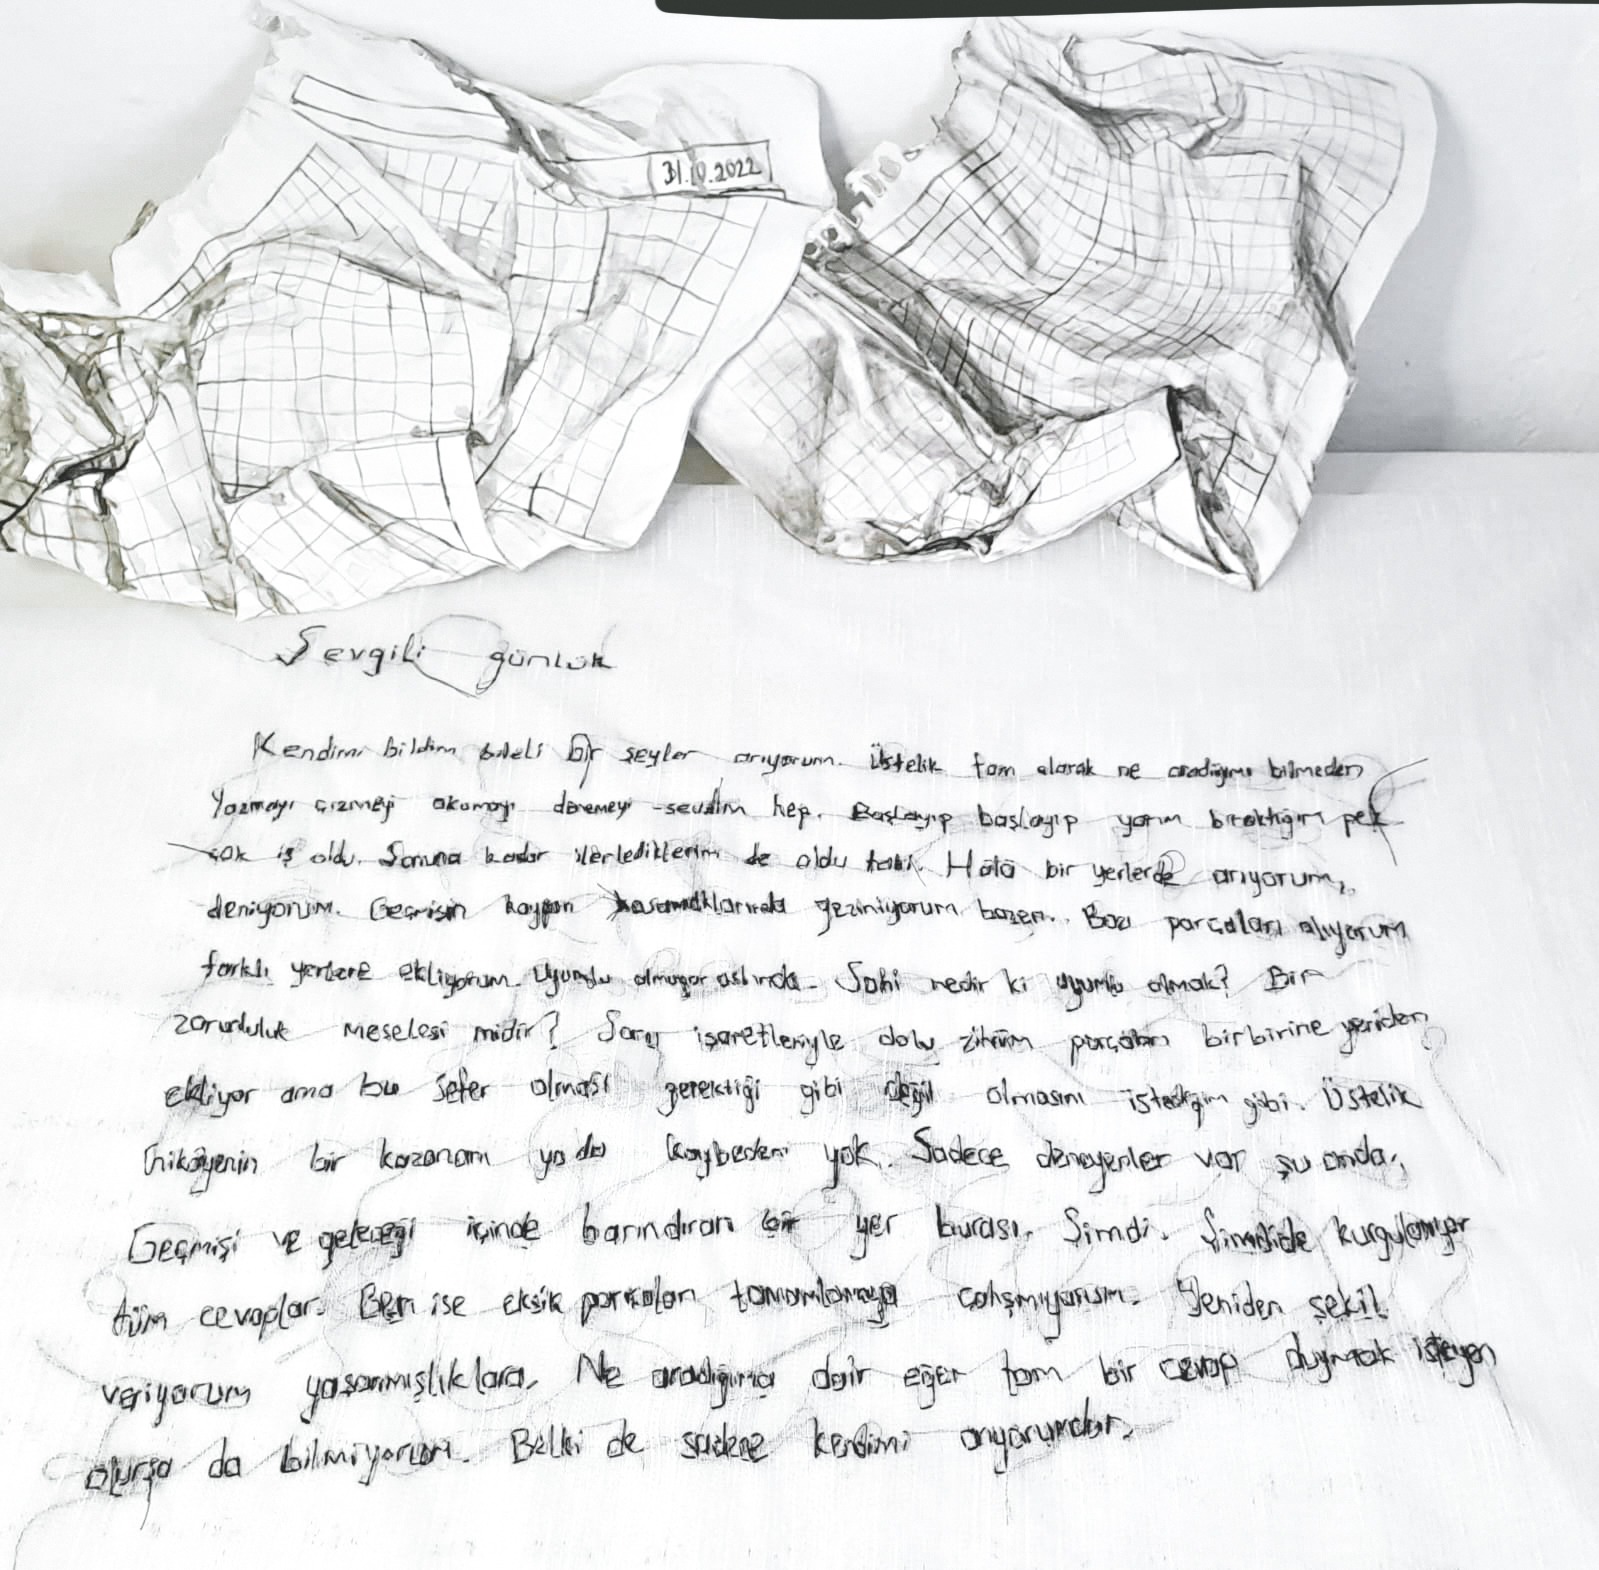 31.10.2022
Sevgili günlük
Kendimi bildim bileli bir şeyler arıyorum. Üstelik tam olarak ne aradığımı bilmeden
Yazmayı çizmeyi okumayı denemeyi -sevdim hep. Başlayıp başlayıp yarım bıraktığım pek
çok iş oldu. Sonuna kadar ilerlediklerim de oldu tabi. Hâlâ bir yerlerde arıyorum,
deniyorum. Geçmişin kaygan basamaklarında geziniyorum bazen. Bazı parçaları alıyorum
farklı yerlere ekliyorum. Uyumlu olmuyor aslında. Sahi nedir ki uyumlu olmak? Bir
zorunluluk meselesi midir? Soru işaretleriyle dolu zihnim parçaları birbirine yeniden
ekliyor ama bu sefer olması gerektiği gibi değil olmasını istediğim gibi. Üstelik
hikâyenin bir kazananı ya da kaybedeni yok. Sadece deneyenler var şu anda.
Geçmişi ve geleceği içinde barındıran bir yer burası. Şimdi. Şimdide kurgulanıyor
tüm cevaplar. Ben ise eksik parçaları tamamlamaya çalışmıyorum. Yeniden şekil
veriyorum yaşanmışlıklara. Ne aradığıma dair eğer tam bir cevap duymak isteyen
olursa da bilmiyorum. Belki de sadece kendimi arıyorumdur.